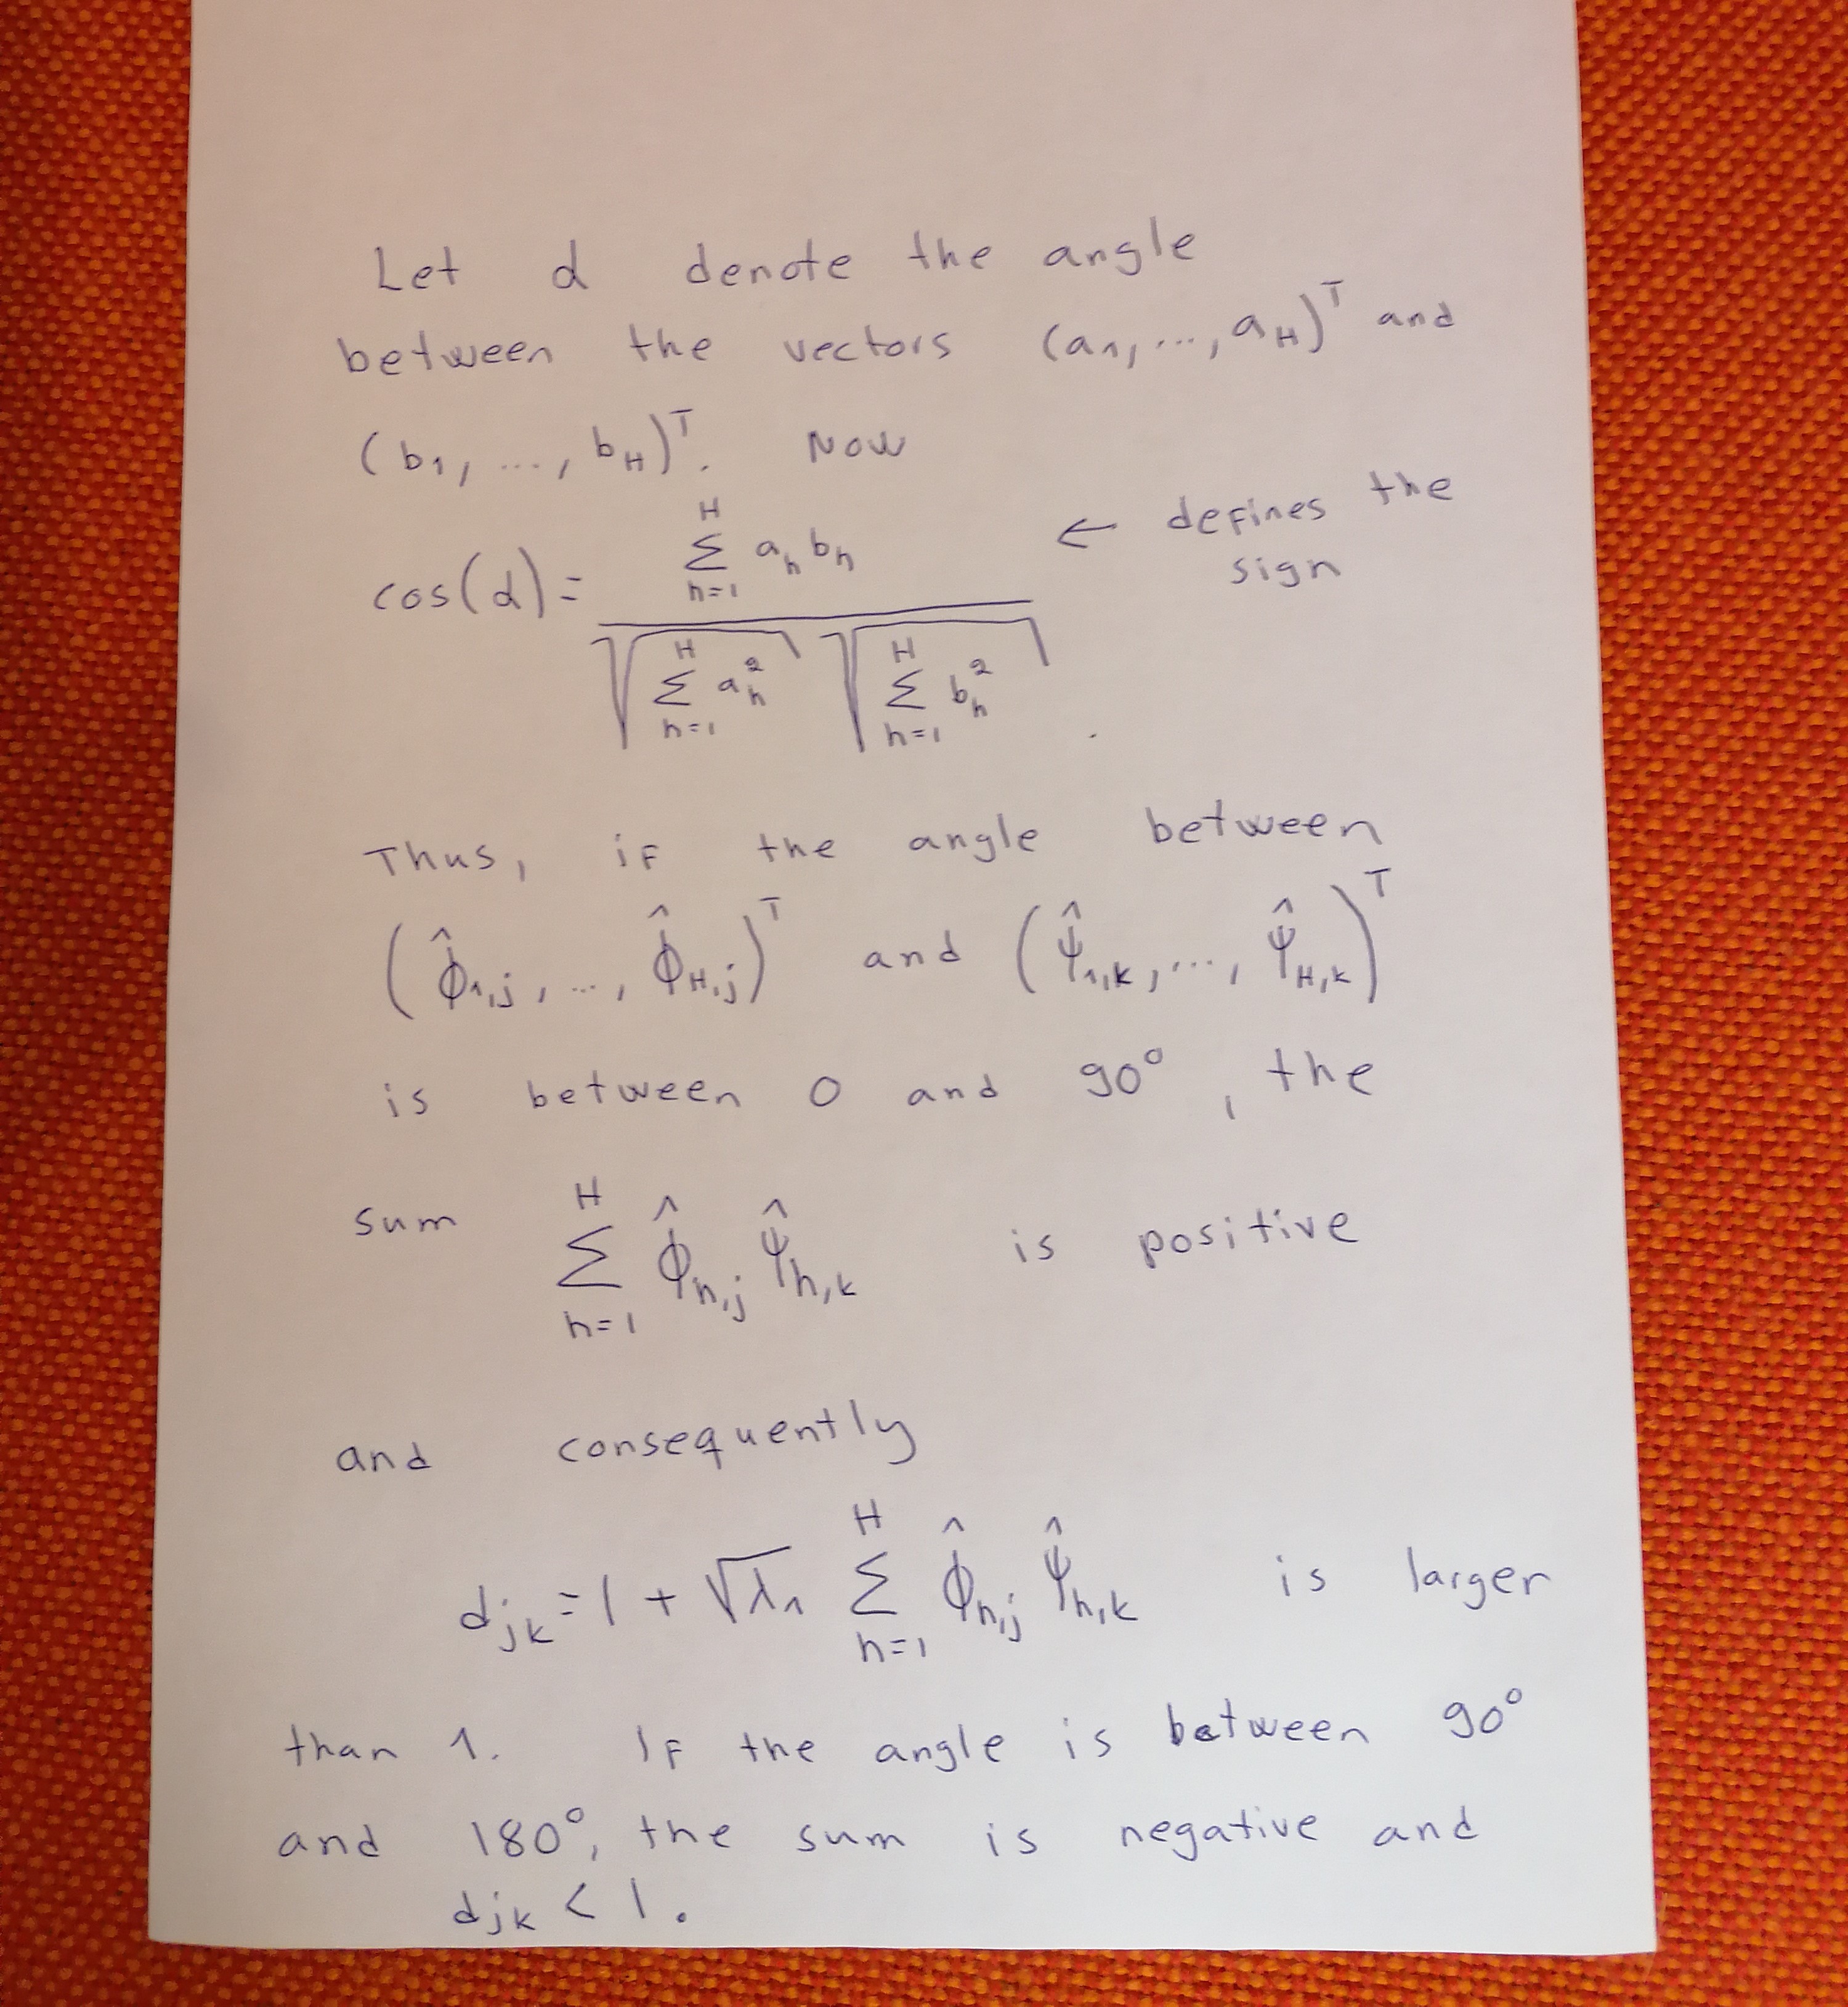 Let α denote the angle
between the vectors (a₁, ..., a_H)ᵀ and
(b₁, ..., b_H)ᵀ. Now
cos(α) = \frac{\sum_{h=1}^{H} a_h b_h}{\sqrt{\sum_{h=1}^{H} a_h^2} \sqrt{\sum_{h=1}^{H} b_h^2}} . ← defines the
sign
Thus, if the angle between
(\hat{φ}_{1,j}, ..., \hat{φ}_{H,j})ᵀ and (\hat{ψ}_{1,k}, ..., \hat{ψ}_{H,k})ᵀ
is between 0 and 90°, the
sum \sum_{h=1}^{H} \hat{φ}_{h,j} \hat{ψ}_{h,k} is positive
and consequently
d_{jk} = 1 + \sqrt{λ_1} \sum_{h=1}^{H} \hat{φ}_{h,j} \hat{ψ}_{h,k} is larger
than 1. If the angle is between 90°
and 180°, the sum is negative and
d_{jk} < 1.